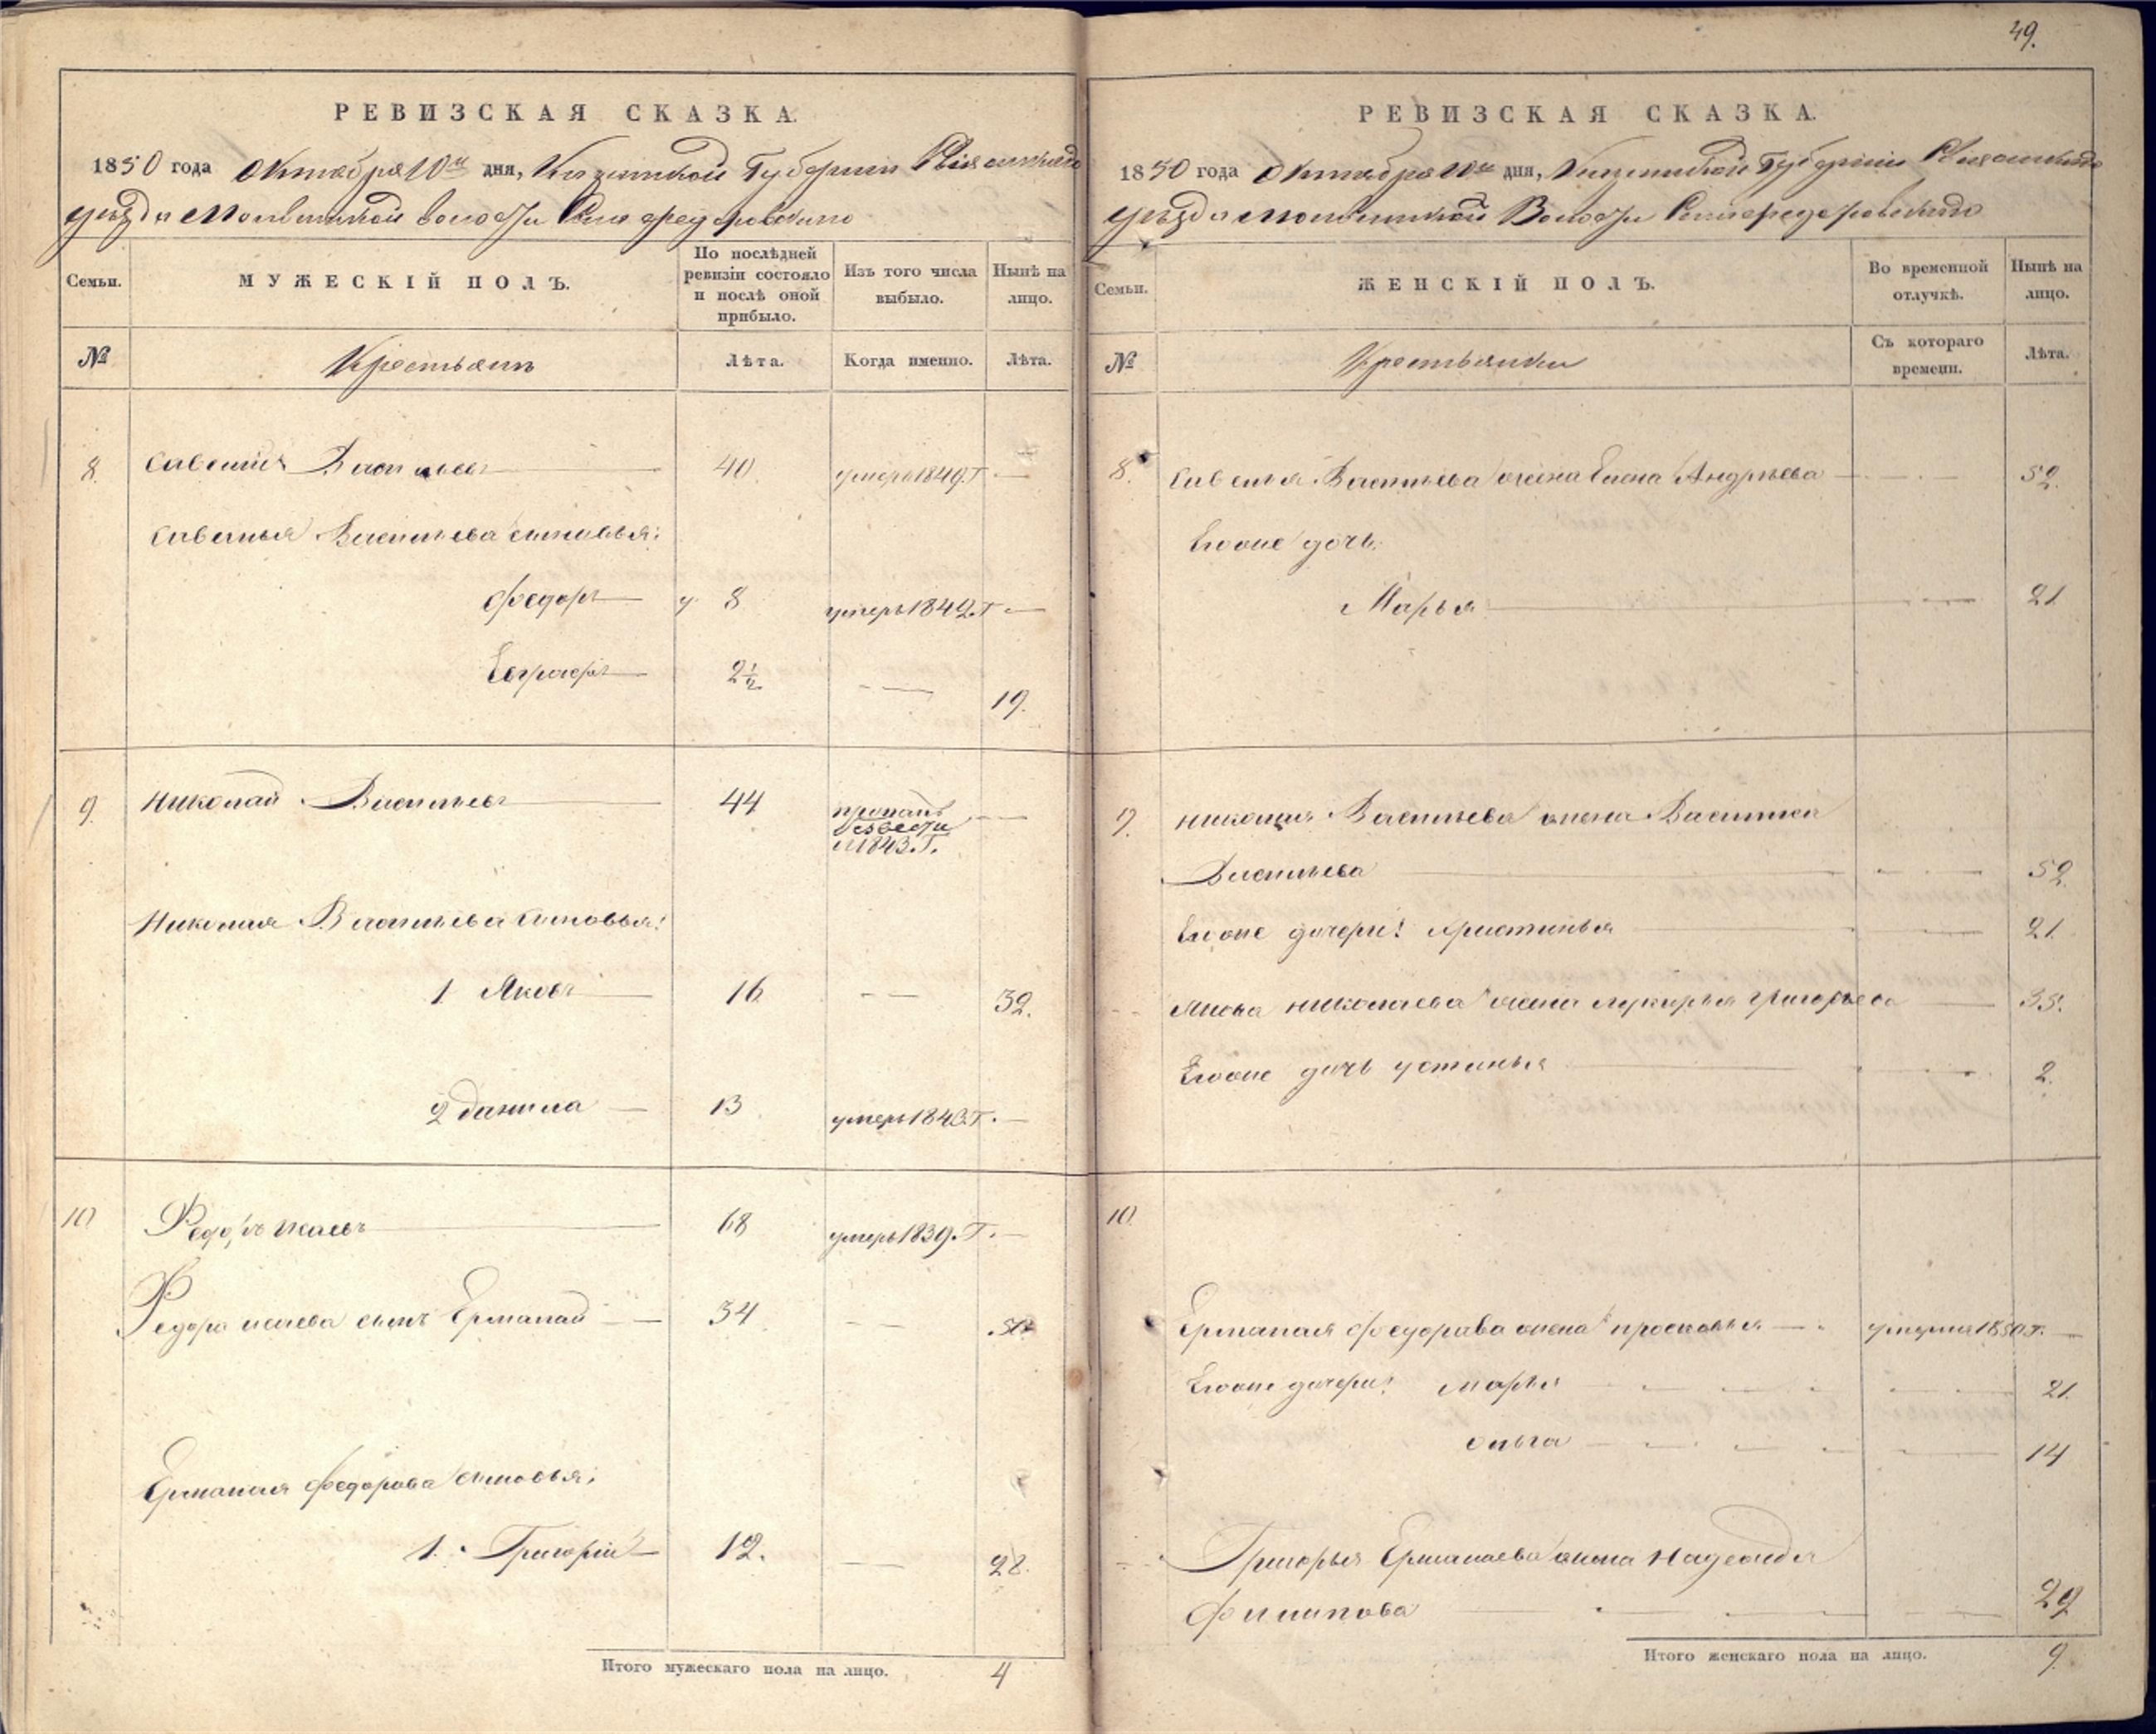 49.
РЕВИЗСКАЯ СКАЗКА.
1850 года Октября 10го дня, Казанской Губернии Свіяжскаго
уѣзда Молвинской волости Села Федоровскаго
Семьи. МУЖЕСКІЙ ПОЛЪ. По послѣдней ревизіи состояло и послѣ оной прибыло. Изъ того числа выбыло. Нынѣ на лицо.
№ Крестьянъ Лѣта. Когда именно. Лѣта.
8. Савелій Васильевъ 40. умеръ 1849. г —
Савелья Васильева сыновья:
Федоръ у 8 умеръ 1842. г —
Евграфъ 2½ — 19.
9. Николай Васильевъ 44 пропалъ —
безвести
1843. г.
Николая Васильева сыновья:
1 Яковъ 16 — 32.
2 данила 13 умеръ 1843. г. —
10 Федоръ Исаевъ 68 умеръ 1839. г. —
Федора исаева сынъ Ермалай 34 — 50
Ермалая федорова сыновья:
1. Григорій 12. — 28.
Итого мужескаго пола на лицо. 4
РЕВИЗСКАЯ СКАЗКА.
1850 года Октября 10го дня, Казанской Губерніи Свіяжскаго
уѣзда Молвинской Волости Села Федоровскаго
Семьи. ЖЕНСКІЙ ПОЛЪ. Во временной отлучкѣ. Нынѣ на лицо.
№ Крестьянки Съ котораго времени. Лѣта.
8. Савелья Васильева жена Елена Андрѣева — 52.
Егоже дочь:
Марья — 21
9. николая Васильева жена Василиса
Васильева — 52
Егоже дочери: Христинья — 21
Якова николаева жена лукерья григорьева — 35.
Егоже дочь устинья — 2.
10.
Ермалая федорава жена просковья — умерла 1850 г. —
Егоже дочери: марья — 21.
ольга — 14
Григорья Ермалаева жена Надежда
филипова — 29
Итого женскаго пола на лицо. 9.